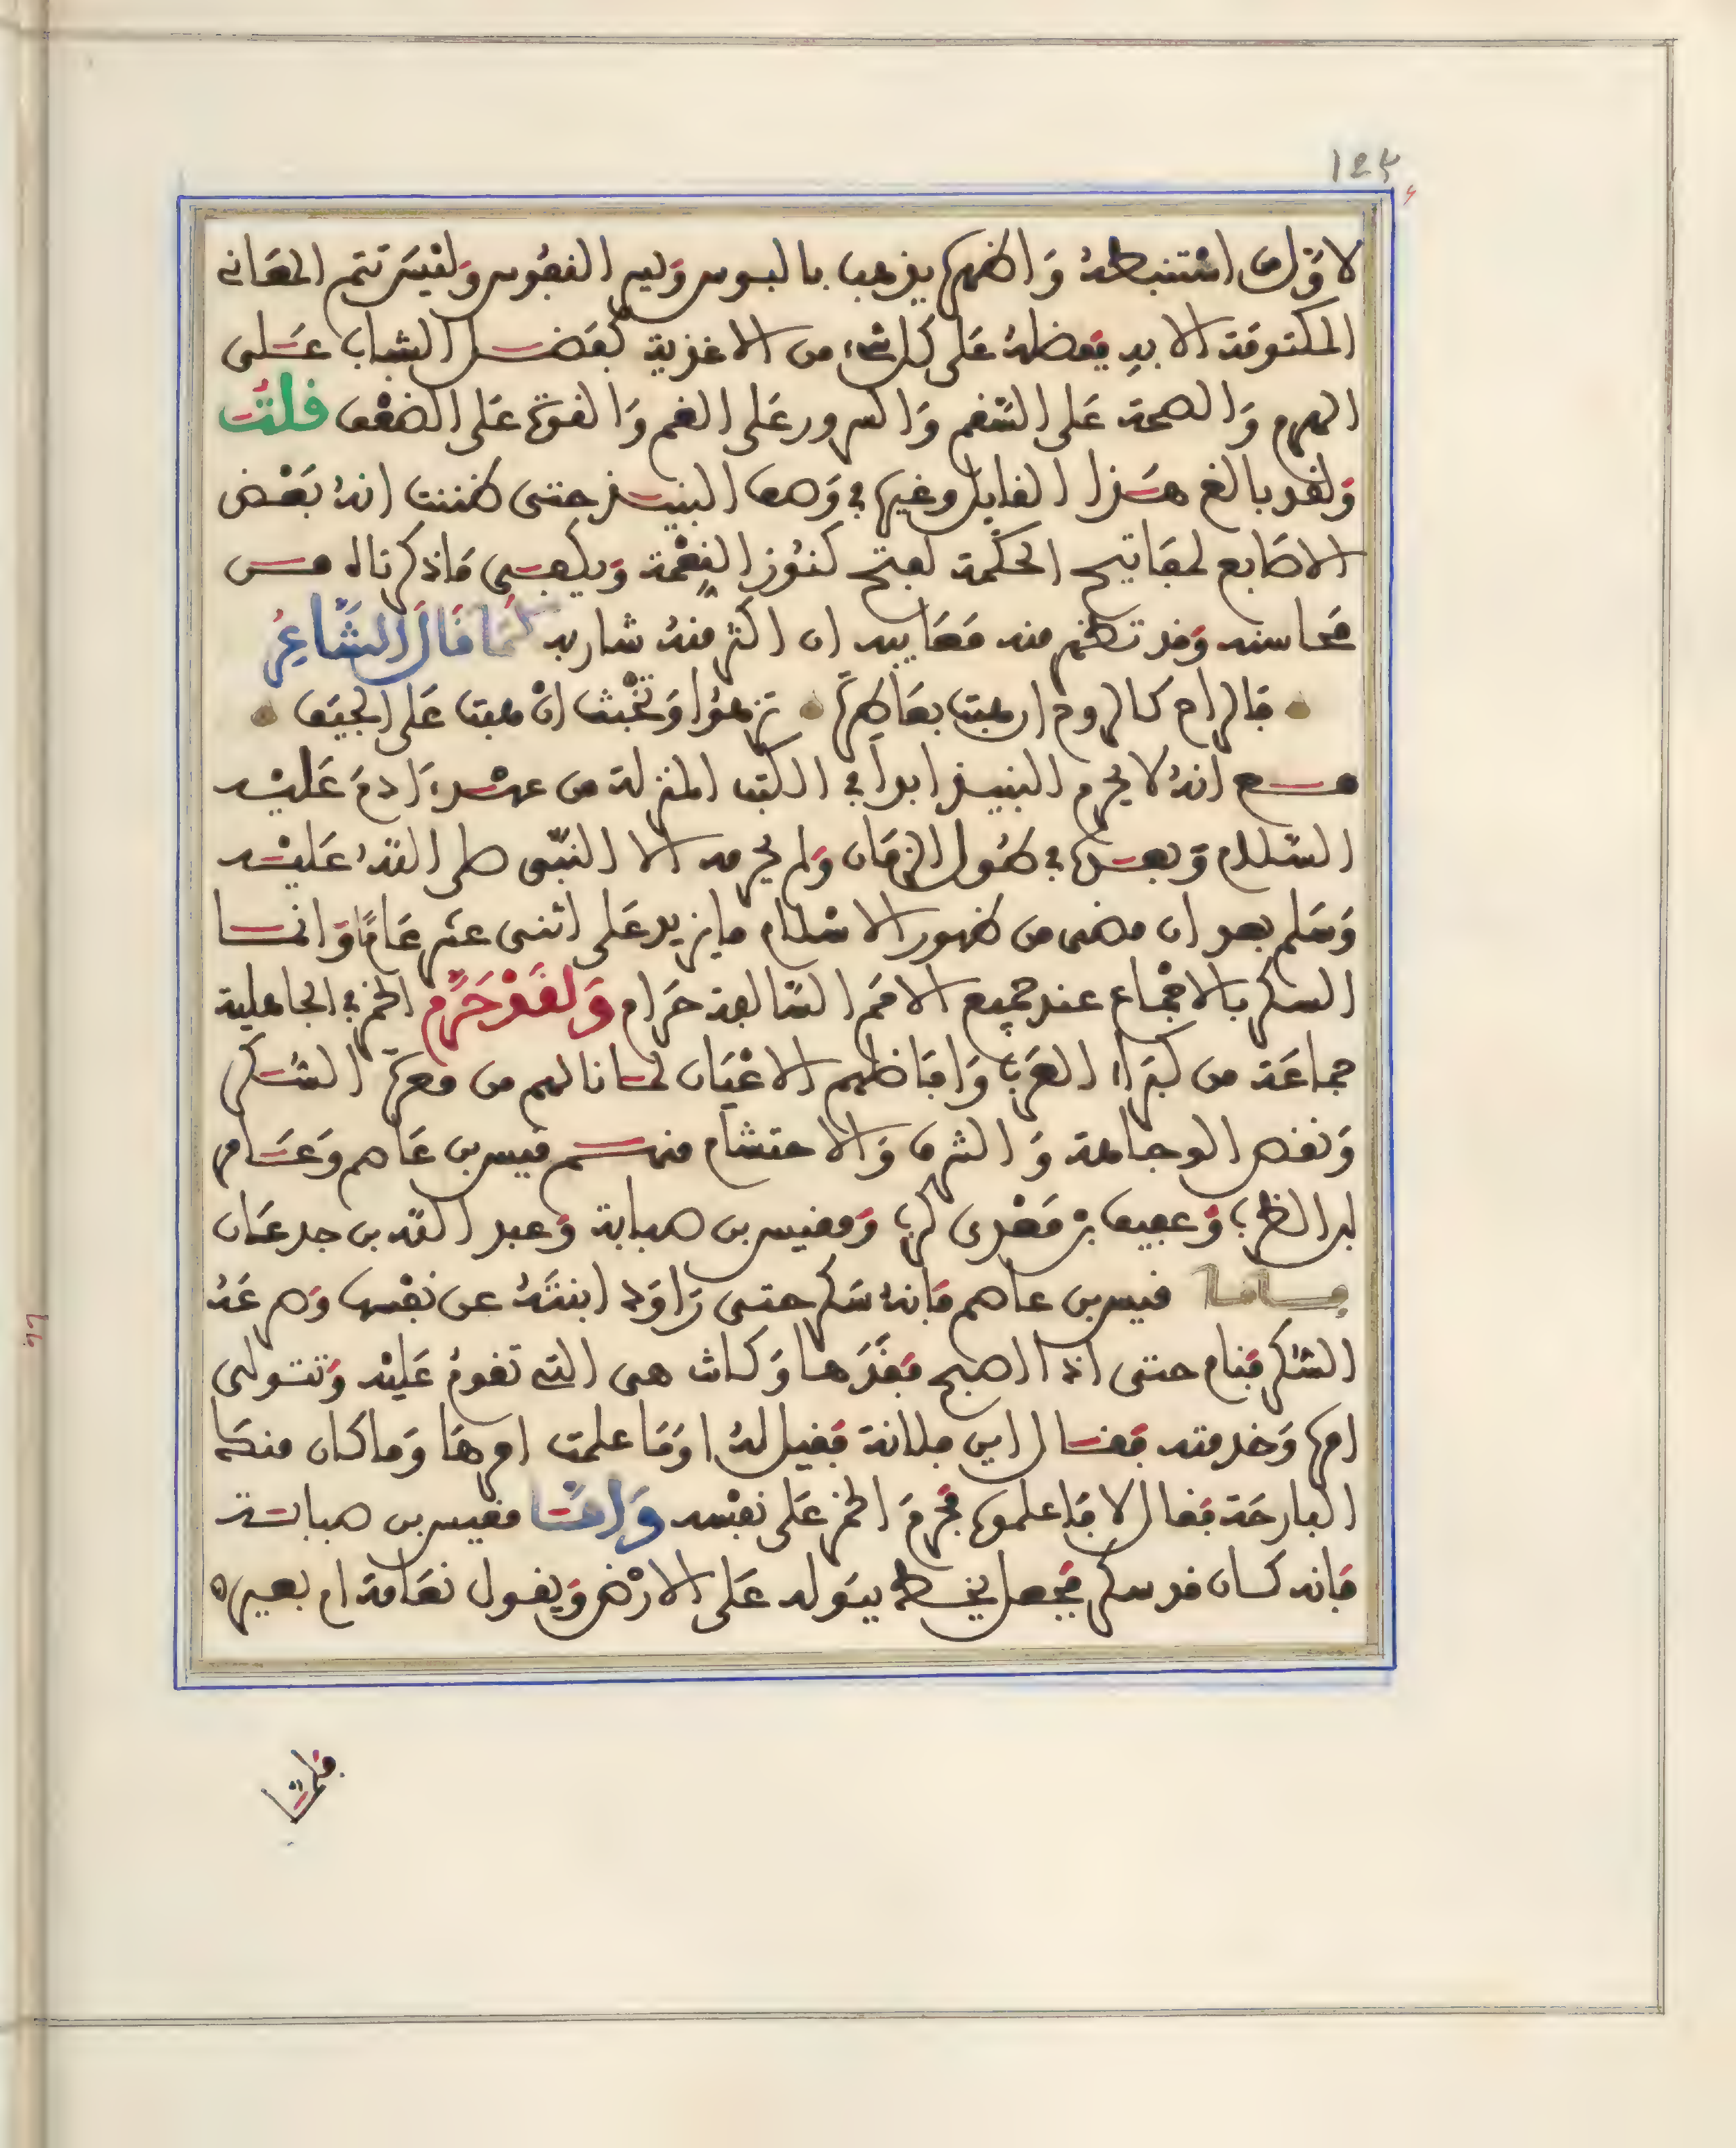 ١٤٢
لاول من استنبطه واظهره يذهب بالبوس ويسر النفوس وليس تتم المعانى
المكتومة الا به يفضله على كل شىء من الاغذية كفضل الشباب على
الهرم والصحة على السقم والسرور على الغم والقوة على الضعف قلت
ولقد بالغ هذا القايل وغيره فى وصف النبيذ حتى ظننت انه بعض
الاصابع لمفاتيح الحكمة لفتح كنوز النعمة ويكفى ماذكرناه من
محاسنه وقد تظهر منه معايبه ان اكثر منه شاربه كما قال الشاعر
فالراح كالروح ان هبت بعاطرة تزهوا وتخبث ان هبت على الجيف
مع انه لا يحرم النبيذ ابدا فى الكتب المنزلة من عهد ءادم عليه
السلام وبعده فى طول الزمان ولم يحرمه الا النبى صلى الله عليه
وسلم بعد ان مضى من ظهور الاسلام مايزيد على اثنى عشر عاما وانما
السكر بالاجماع عند جميع الامم السالفة حرام ولقد حرم الخمر فى الجاهلية
جماعة من كبراء العرب وافاضلهم الاعيان لما نالهم من معرة السكر
ونقص الوجاهة والشرف والاحتشام منهم قيس بن عاصم وعامر
ابن الظرب وعفيف بن معدى كرب ومقيس بن صبابة وعبد الله بن جدعان
فاما قيس بن عاصم فانه سكر حتى راود ابنته عن نفسها وصرعه
السكر فنام حتى اذا اصبح فقدها وكانت هى التى تقوم عليه وتتولى
امره وخدمته فقال اين فلانة فقيل له اوما علمت امرها وما كان منك
البارحة فقال لا فاعلموه فحرم الخمر على نفسه واما مقيس بن صبابة
فانه كان قد سكر فجعل يخط ببوله على الارض ويقول نعامة ام بعيره
فلما